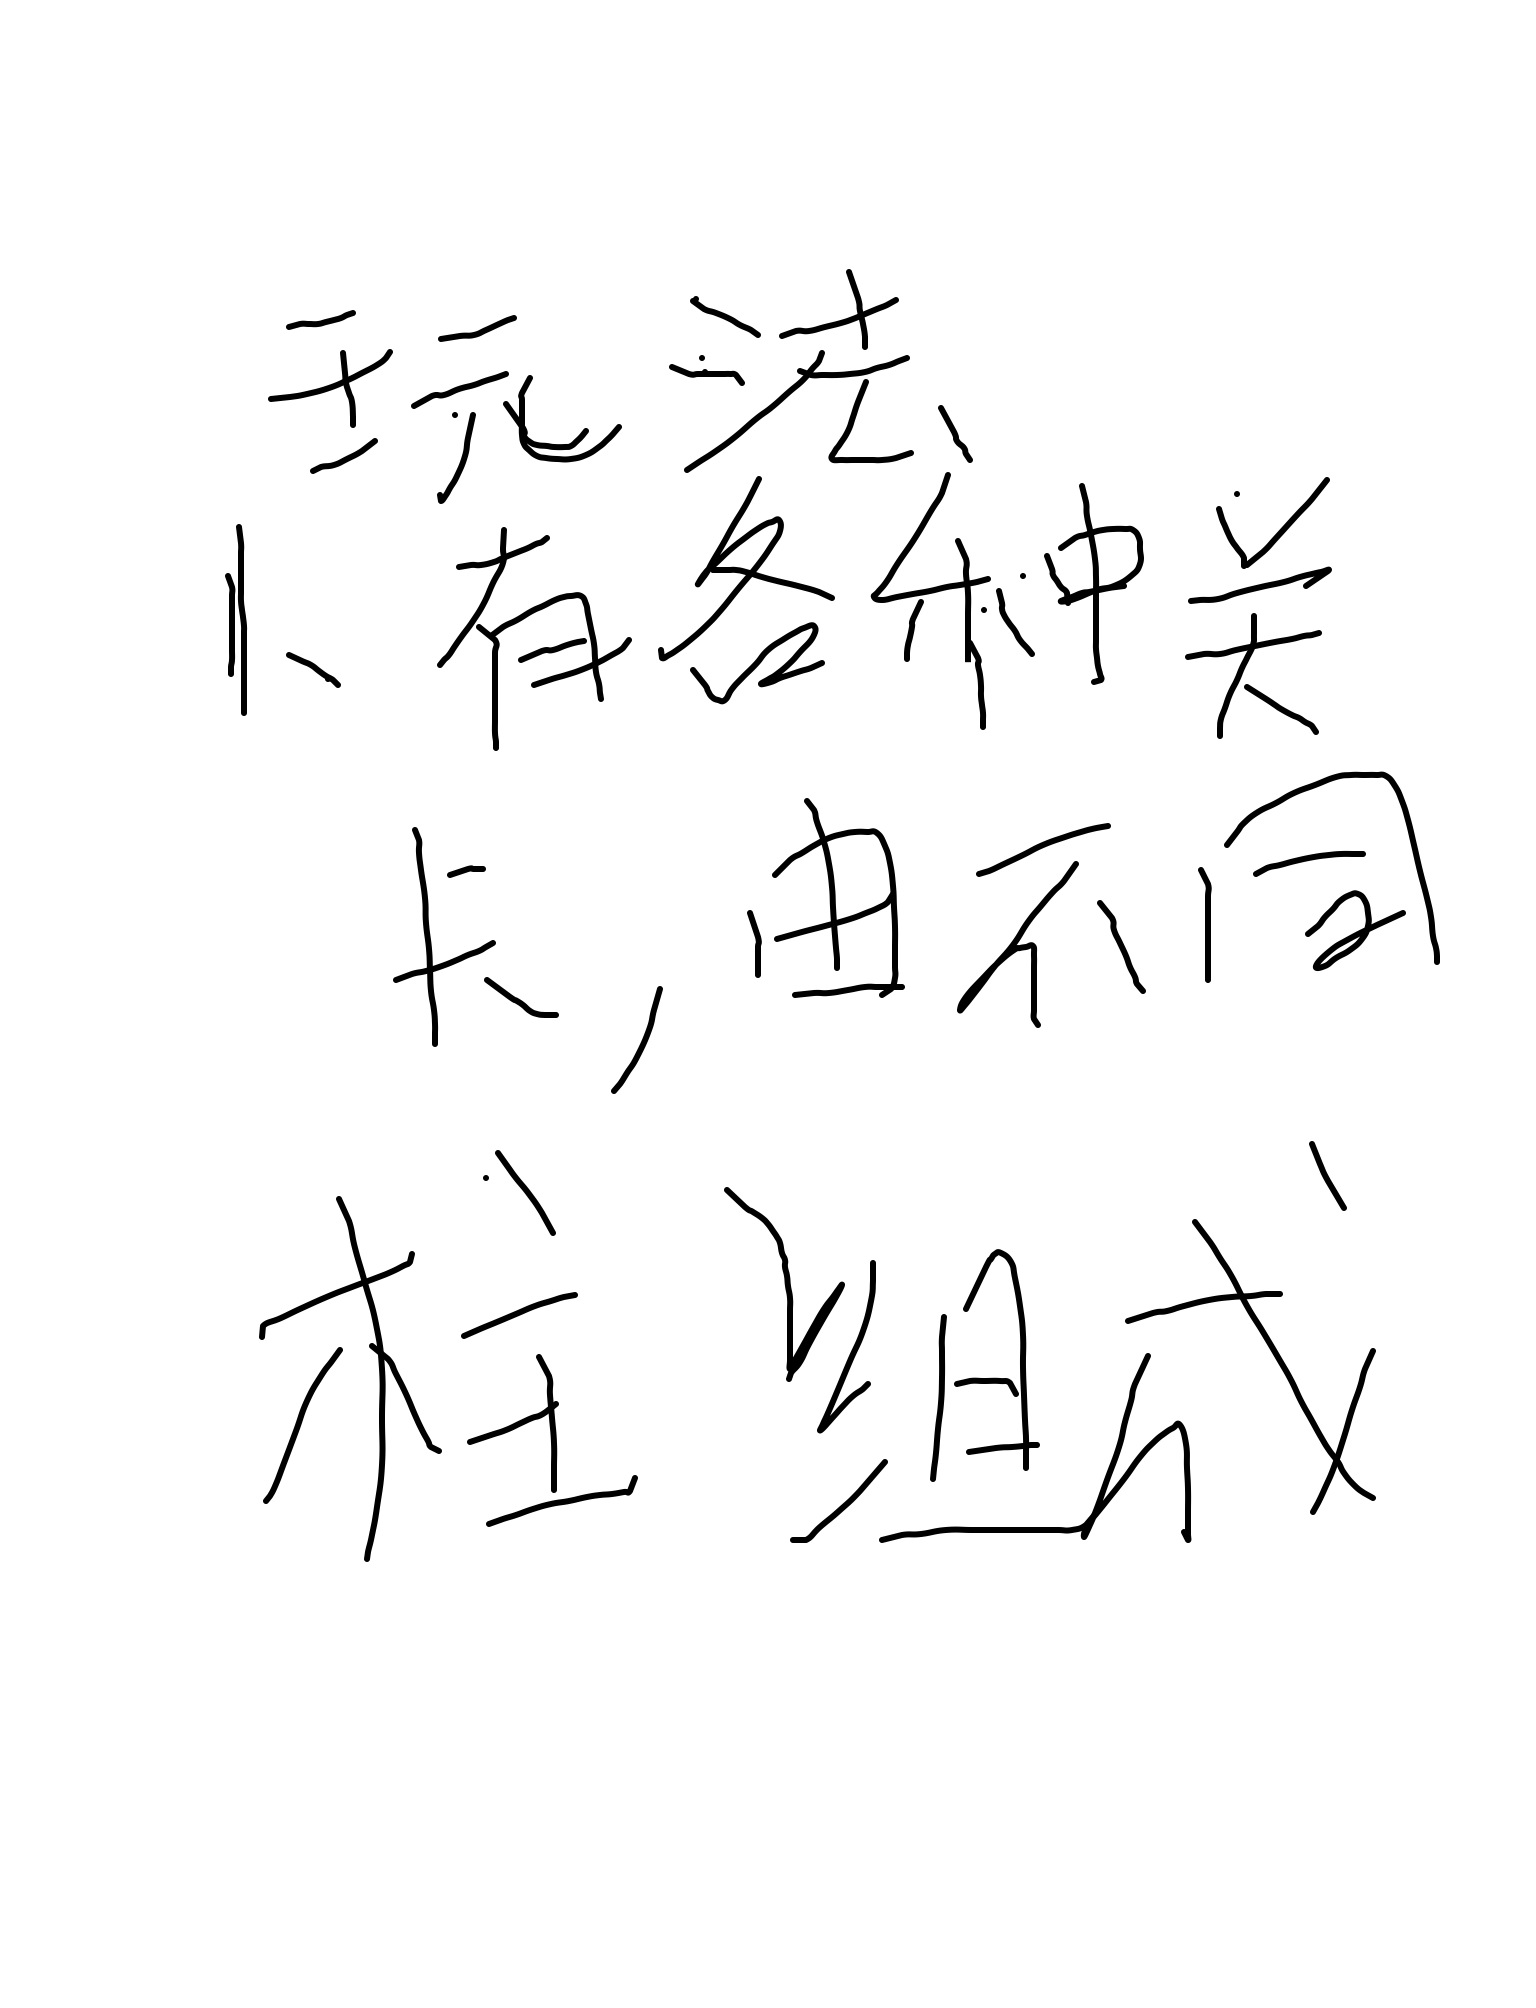 玩法
1、有各种关
卡,由不同
柱组成